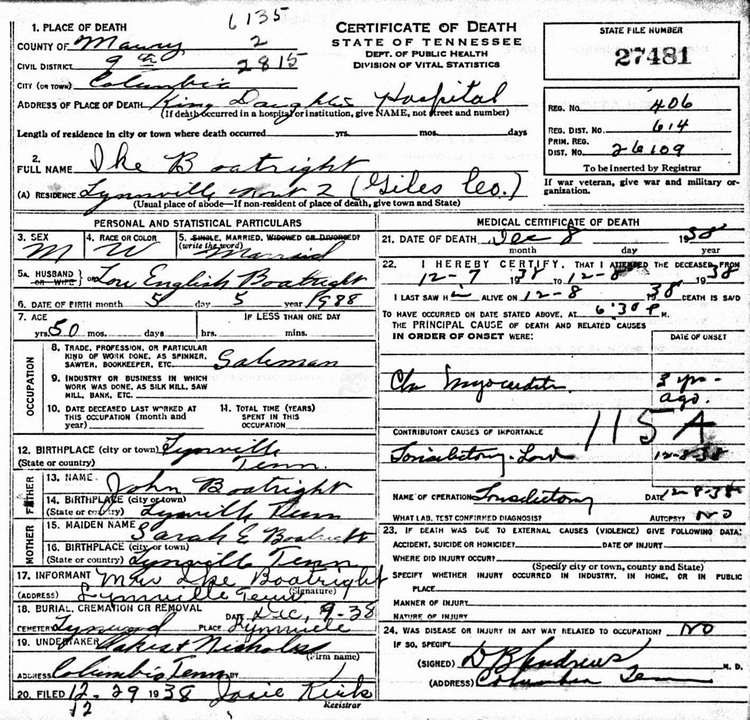 6135
1. PLACE OF DEATH
COUNTY OF Maury 2
CIVIL DISTRICT 9th 2815
CITY (OR TOWN) Columbia
ADDRESS OF PLACE OF DEATH King Daughters Hospital
(If death occurred in a hospital or institution, give NAME, not street and number)
Length of residence in city or town where death occurred yrs. mos. days
CERTIFICATE OF DEATH
STATE OF TENNESSEE
DEPT. OF PUBLIC HEALTH
DIVISION OF VITAL STATISTICS
STATE FILE NUMBER
27481
REG. NO. 406
REG. DIST. NO. 614
PRIM. REG.
DIST. NO. 26109
To be inserted by Registrar
If war veteran, give war and military organization.
2.
FULL NAME Ike Boatright
(A) RESIDENCE Lynnville Rout 2 (Giles Co.)
(Usual place of abode—If non-resident of place of death, give town and State)
PERSONAL AND STATISTICAL PARTICULARS
3. SEX M
4. RACE OR COLOR W
5. SINGLE, MARRIED, WIDOWED OR DIVORCED?
(write the word) Married
5A. HUSBAND
OR WIFE OF Lou English Boatright
6. DATE OF BIRTH month 5 day 5 year 1888
7. AGE IF LESS THAN ONE DAY
yrs. 50 mos. days hrs. mins.
OCCUPATION
8. TRADE, PROFESSION, OR PARTICULAR
KIND OF WORK DONE, AS SPINNER,
SAWYER, BOOKKEEPER, ETC. Salesman
9. INDUSTRY OR BUSINESS IN WHICH
WORK WAS DONE, AS SILK MILL, SAW
MILL, BANK, ETC.
10. DATE DECEASED LAST WORKED AT
THIS OCCUPATION (month and
year)
11. TOTAL TIME (YEARS)
SPENT IN THIS
OCCUPATION
12. BIRTHPLACE (city or town) Lynnville
(State or country) Tenn.
FATHER
13. NAME John Boatright
14. BIRTHPLACE (city or town)
(State or country) Lynnville Tenn
MOTHER
15. MAIDEN NAME Sarah E Boatright
16. BIRTHPLACE (city or town)
(State or country) Lynnville Tenn
17. INFORMANT Mrs Ike Boatright
(Signature)
(ADDRESS) Lynnville Tenn
18. BURIAL, CREMATION OR REMOVAL DATE Dec, 9-38
CEMETERY Lynnwood PLACE Lynnville
19. UNDERTAKER Oakes & Nichols
(Firm name)
ADDRESS Columbia Tenn BY
20. FILED 12-29 1938 Josie Kirk
Registrar
12
MEDICAL CERTIFICATE OF DEATH
21. DATE OF DEATH Dec 8 1938
month day year
22. I HEREBY CERTIFY, THAT I ATTENDED THE DECEASED FROM
12-7 1938 TO 12-8 1938
I LAST SAW H im ALIVE ON 12-8 1938 DEATH IS SAID
TO HAVE OCCURRED ON DATE STATED ABOVE, AT 6:30 P M.
THE PRINCIPAL CAUSE OF DEATH AND RELATED CAUSES
IN ORDER OF ONSET WERE: DATE OF ONSET
Chr Myocarditis 3 yrs-
ago.
115A
CONTRIBUTORY CAUSES OF IMPORTANCE
Tonsilectomy- 12-8-38
NAME OF OPERATION Tonsilectomy DATE 12-8-38
WHAT LAB. TEST CONFIRMED DIAGNOSIS? AUTOPSY? NO
23. IF DEATH WAS DUE TO EXTERNAL CAUSES (VIOLENCE) GIVE FOLLOWING DATA:
ACCIDENT, SUICIDE OR HOMICIDE? DATE OF INJURY
WHERE DID INJURY OCCUR?
(Specify city or town, county and State)
SPECIFY WHETHER INJURY OCCURRED IN INDUSTRY, IN HOME, OR IN PUBLIC
PLACE
MANNER OF INJURY
NATURE OF INJURY
24. WAS DISEASE OR INJURY IN ANY WAY RELATED TO OCCUPATION? NO
IF SO, SPECIFY
(SIGNED) D B Andrews M. D.
(ADDRESS) Columbia Tenn